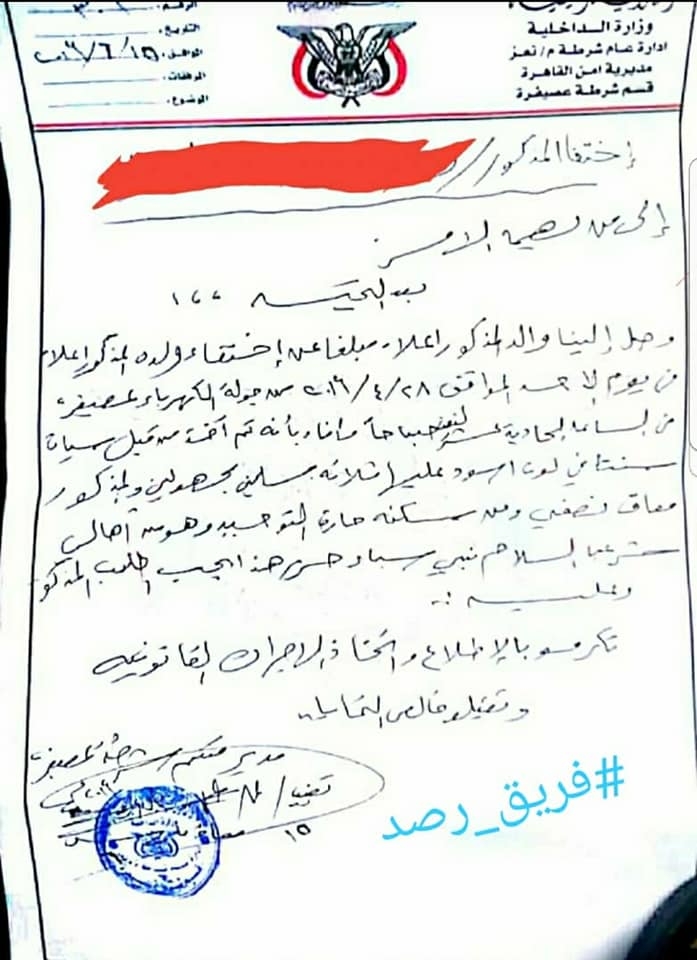 وزارة الداخلية
ادارة عام شرطة م/ تعز
مديرية امن القاهرة
قسم شرطة عصيفرة
الرقم:
التاريخ:
الموافق: ٢٠١٦/٦/١٥
المرفقات:
الموضوع:
إختفا المذكور /
إلى من يهمه الامر
بعد التحيه ،،،
وصل إلينا والد المذكور اعلاه مبلغا عن إختفاء ولده المذكور اعلاه
في يوم الاحد الموافق ٢٠١٦/٤/٢٨ من جولة الكهرباء عصيفره
من الساعة الحادية عشر صباحاً وافاد بأنه تم أخذه من قبل سيارة
في لون اسود عليها ثلاثه مسلحين مجهولين والمذكور
معاق نصفي ومن سكنه حارة التوحيد وهو من أهالي
شرعب السلام نبي سبا حسن هذا بحسب طلب المذكور
وعليه :..
تكرمو بالإطلاع واتخاذ الاجراءات القانونيه
وتقبلو خالص التحايا..
مدير قسم شرطة عصيفره
#فريق_رصد